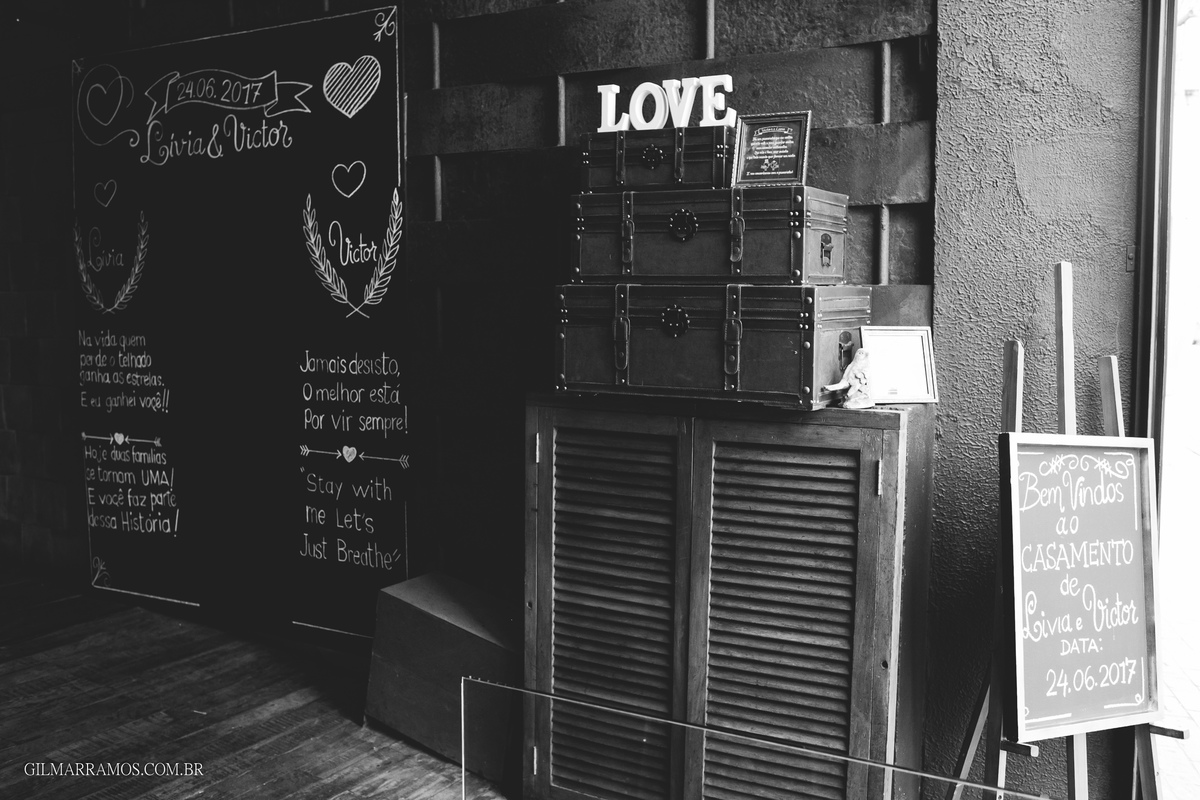 24.06.2017
Lívia & Victor
Lívia
Na vida quem
perde o telhado
ganha as estrelas.
E eu ganhei você!!
Hoje duas famílias
se tornam UMA!
E você faz parte
dessa História!
Victor
Jamais desisto,
O melhor está
Por vir sempre!
"Stay with
me Let's
Just Breathe"
LOVE
Bem Vindos
ao
CASAMENTO
de
Lívia e Victor
DATA:
24.06.2017
GILMARRAMOS.COM.BR